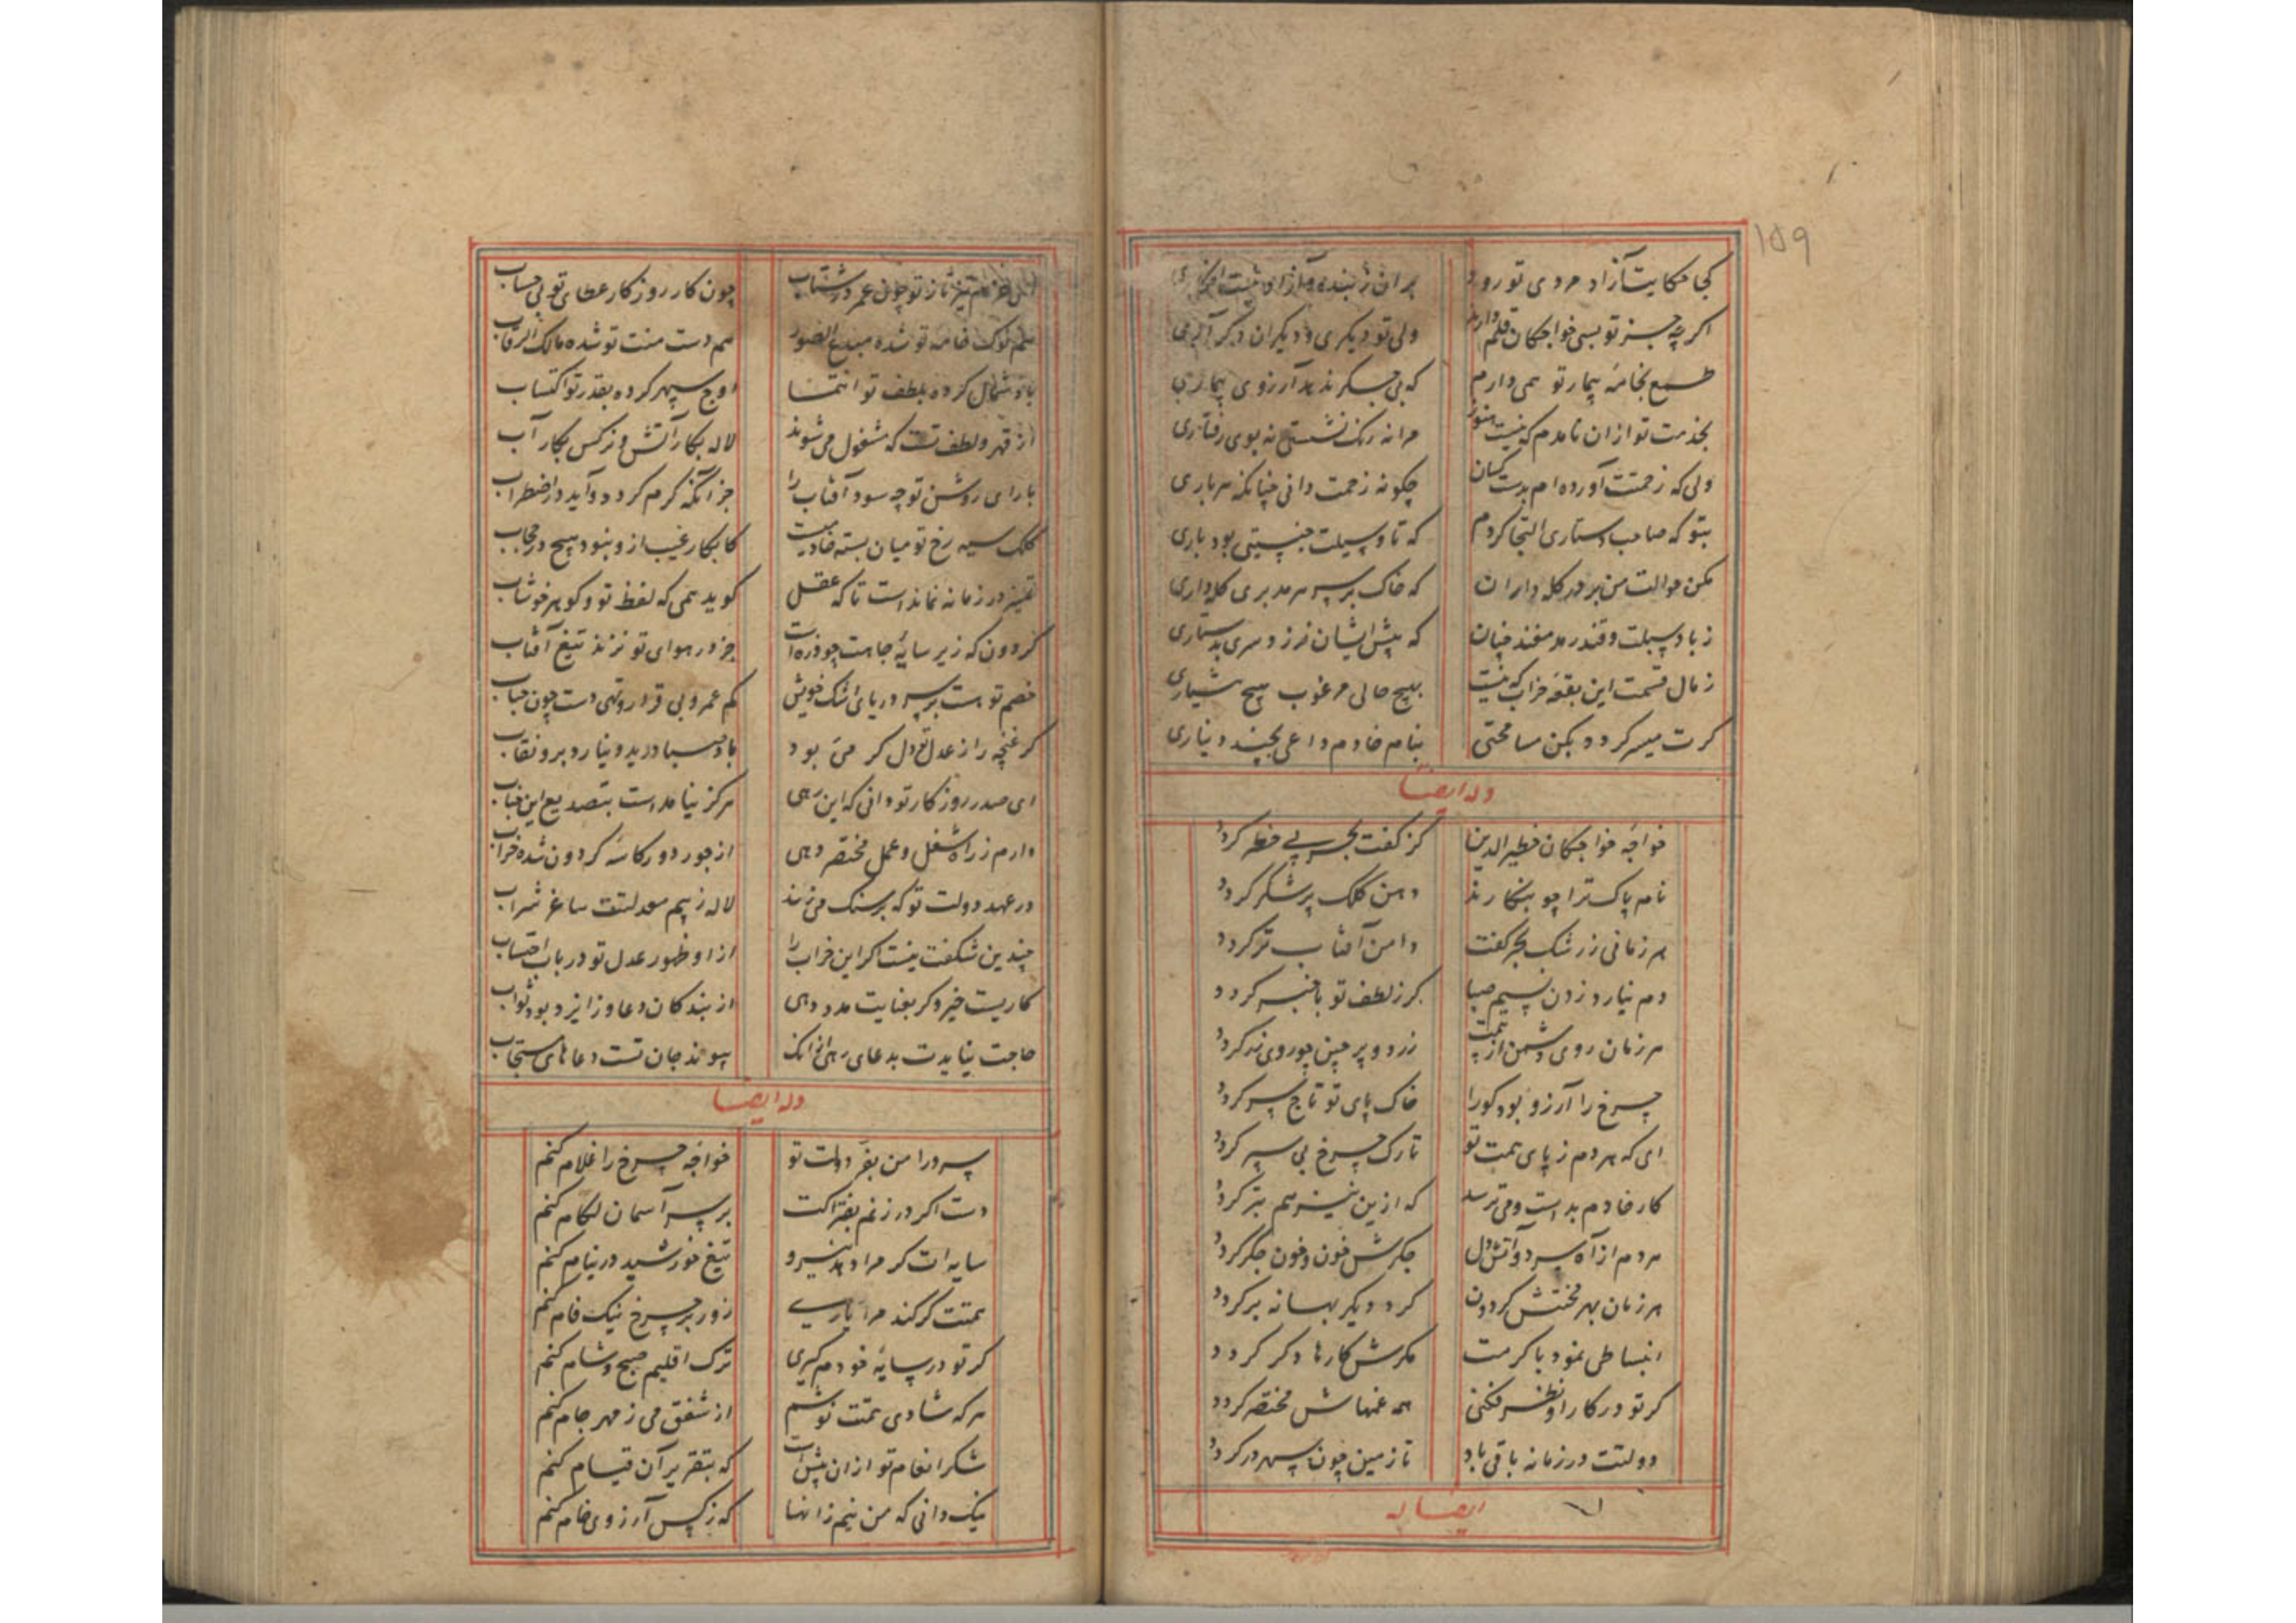 ۱۵۹
کجا حکایت آزاد مردی تو رود
بران ز بنده و آزاد نیست
اگرچه جز تو بسی خواجگان قلم دارند
ولی تو دیگری و دیگران دگر آری
طمع بخامه بیمار تو همی دارم
که بی جگر ندهد آرزوی بیماری
بخدمت تو ازان نامدم که نیست هنوز
مرا نه رنک نشستی نه بوی رفتاری
ولی که زحمتت آورده ام بدست کسان
چکونه زحمت دانی چنانکه سرباری
بتو که صاحب دستاری التجا کردم
که تا وسیلت جنسیتی بود باری
مکن حوالت من بر در کله داران
که خاک بر سر هر مدبری کله داری
ز باد سبلت و قندر هر مفند چنان
که پیش ایشان نرزد سری بدستاری
ز مال قسمت این بقعه خراب که نیست
بهیچ حالی مرغوب هیچ هشیاری
کرت میسر کردد بکن مسامحتی
بنام خادم داعی بچند دیناری
وله ایضا
خواجه خواجکان خطیر الدین
کز کفت بحر بی خطر کردد
نام پاک ترا چو بنکارند
دهن کلک پر شکر کردد
هر زمانی ز رشک بحر کفت
دامن آفتاب تر کردد
دم نیارد زدن نسیم صبا
کر ز لطف تو باخبر کردد
هر زمان روی دشمن از بیمت
زرد و پر چین چو روی زر کردد
چرخ را آرزو بود کورا
خاک پای تو تاج سر کردد
ای که هر دم ز پای همت تو
تارک چرخ پی سپر کردد
کار خادم بدست و می ترسد
که ازین نیز هم بتر کردد
هر دم از آه سرد و آتش دل
جکرش خون و خون جکر کردد
هر زمان بهر محنتش کردون
کرد دیکر بهانه بر کردد
انبساطی نمود با کرمت
مکرش کارها دکر کردد
کر تو در کار او نظر فکنی
همه غمهاش مختصر کردد
دولتت در زمانه باقی باد
تا زمین چون سپهر در کردد
ایضا له
تیز تاز تو چون عمر در شتاب
چون کار روزکار عطای تو بی حساب
هم نوک خامه تو شده مبدع الصور
هم دست منت تو شده مالک الرقاب
باد شمال کرده بلطف تو انتما
اوج سپهر کرده بقدر تو اکتساب
از قهر و لطف تست که مشغول می شوند
لاله بکار آتش و نرکس بکار آب
با رای روشن تو چه سود آفتاب را
جز آنکه کرم کردد و آید در اضطراب
کلک سیه رخ تو میان بسته خادمیست
کابکار غیب ازو نبود هیچ در حجاب
تمییز در زمانه نماندست تا که عقل
کوید همی که لفظ تو و کوهر خوشاب
کردون که زیر سایه جاهت چو ذره است
جز در هوای تو نزند تیغ آفتاب
خصم تو هست بر سر دریای اشک خویش
کم عمر و بی قرار و تهی دست چون حباب
کر غنچه را ز عدل تو دل کرم می بود
باد صبا درید و نیارد برو نقاب
ای صدر روزکار تو دانی که این رهی
هرکز نیامدست بتصدیع این جناب
دارم ز راه شغل و عمل مختصر دهی
از جور دور کاسه کردون شده خراب
در عهد دولت تو که بر سنک می زند
لاله ز بیم معدلتت ساغر شراب
چندین شکفت نیست اکر این خراب را
از او ظهور عدل تو در باب احتساب
کاریست خیر و کر بعنایت مدد دهی
از بندکان دعا و ز ایزد بود ثواب
حاجت نیایدت بدعای رهی ازانک
پیوند جان تست دعاهای مستجاب
وله ایضا
سرورا من بفر دولت تو
خواجه چرخ را غلام کنم
دست اکر در زنم بفتراکت
بر سر آسمان لکام کنم
سایه ات کر مرا دهد نیرو
تیغ خورشید در نیام کنم
همتت کر کند مرا یاری
زور بر چرخ نیک فام کنم
کر تو در سایه خودم کیری
ترک اقلیم صبح و شام کنم
هر که شادی همتت نوشم
از شفق می ز مهر جام کنم
شکر انعام تو ازان بیش است
که بتقریر آن قیام کنم
نیک دانی که من نیم زانها
که ز کس آرزوی خام کنم